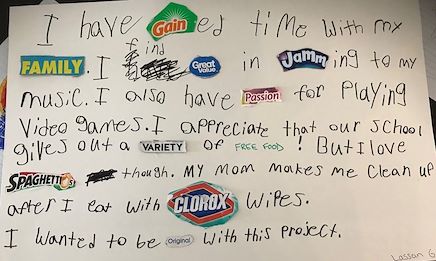 I have Gained time with my
find
FAMILY. I Great Value in Jamming to my
music. I also have Passion for playing
Video games. I appreciate that our school
gives out a VARIETY of FREE FOOD! But I love
SPAGHETTIOS though. MY Mom makes me clean up
after I eat with CLOROX wipes.
I wanted to be Original with this project.
Lassan G